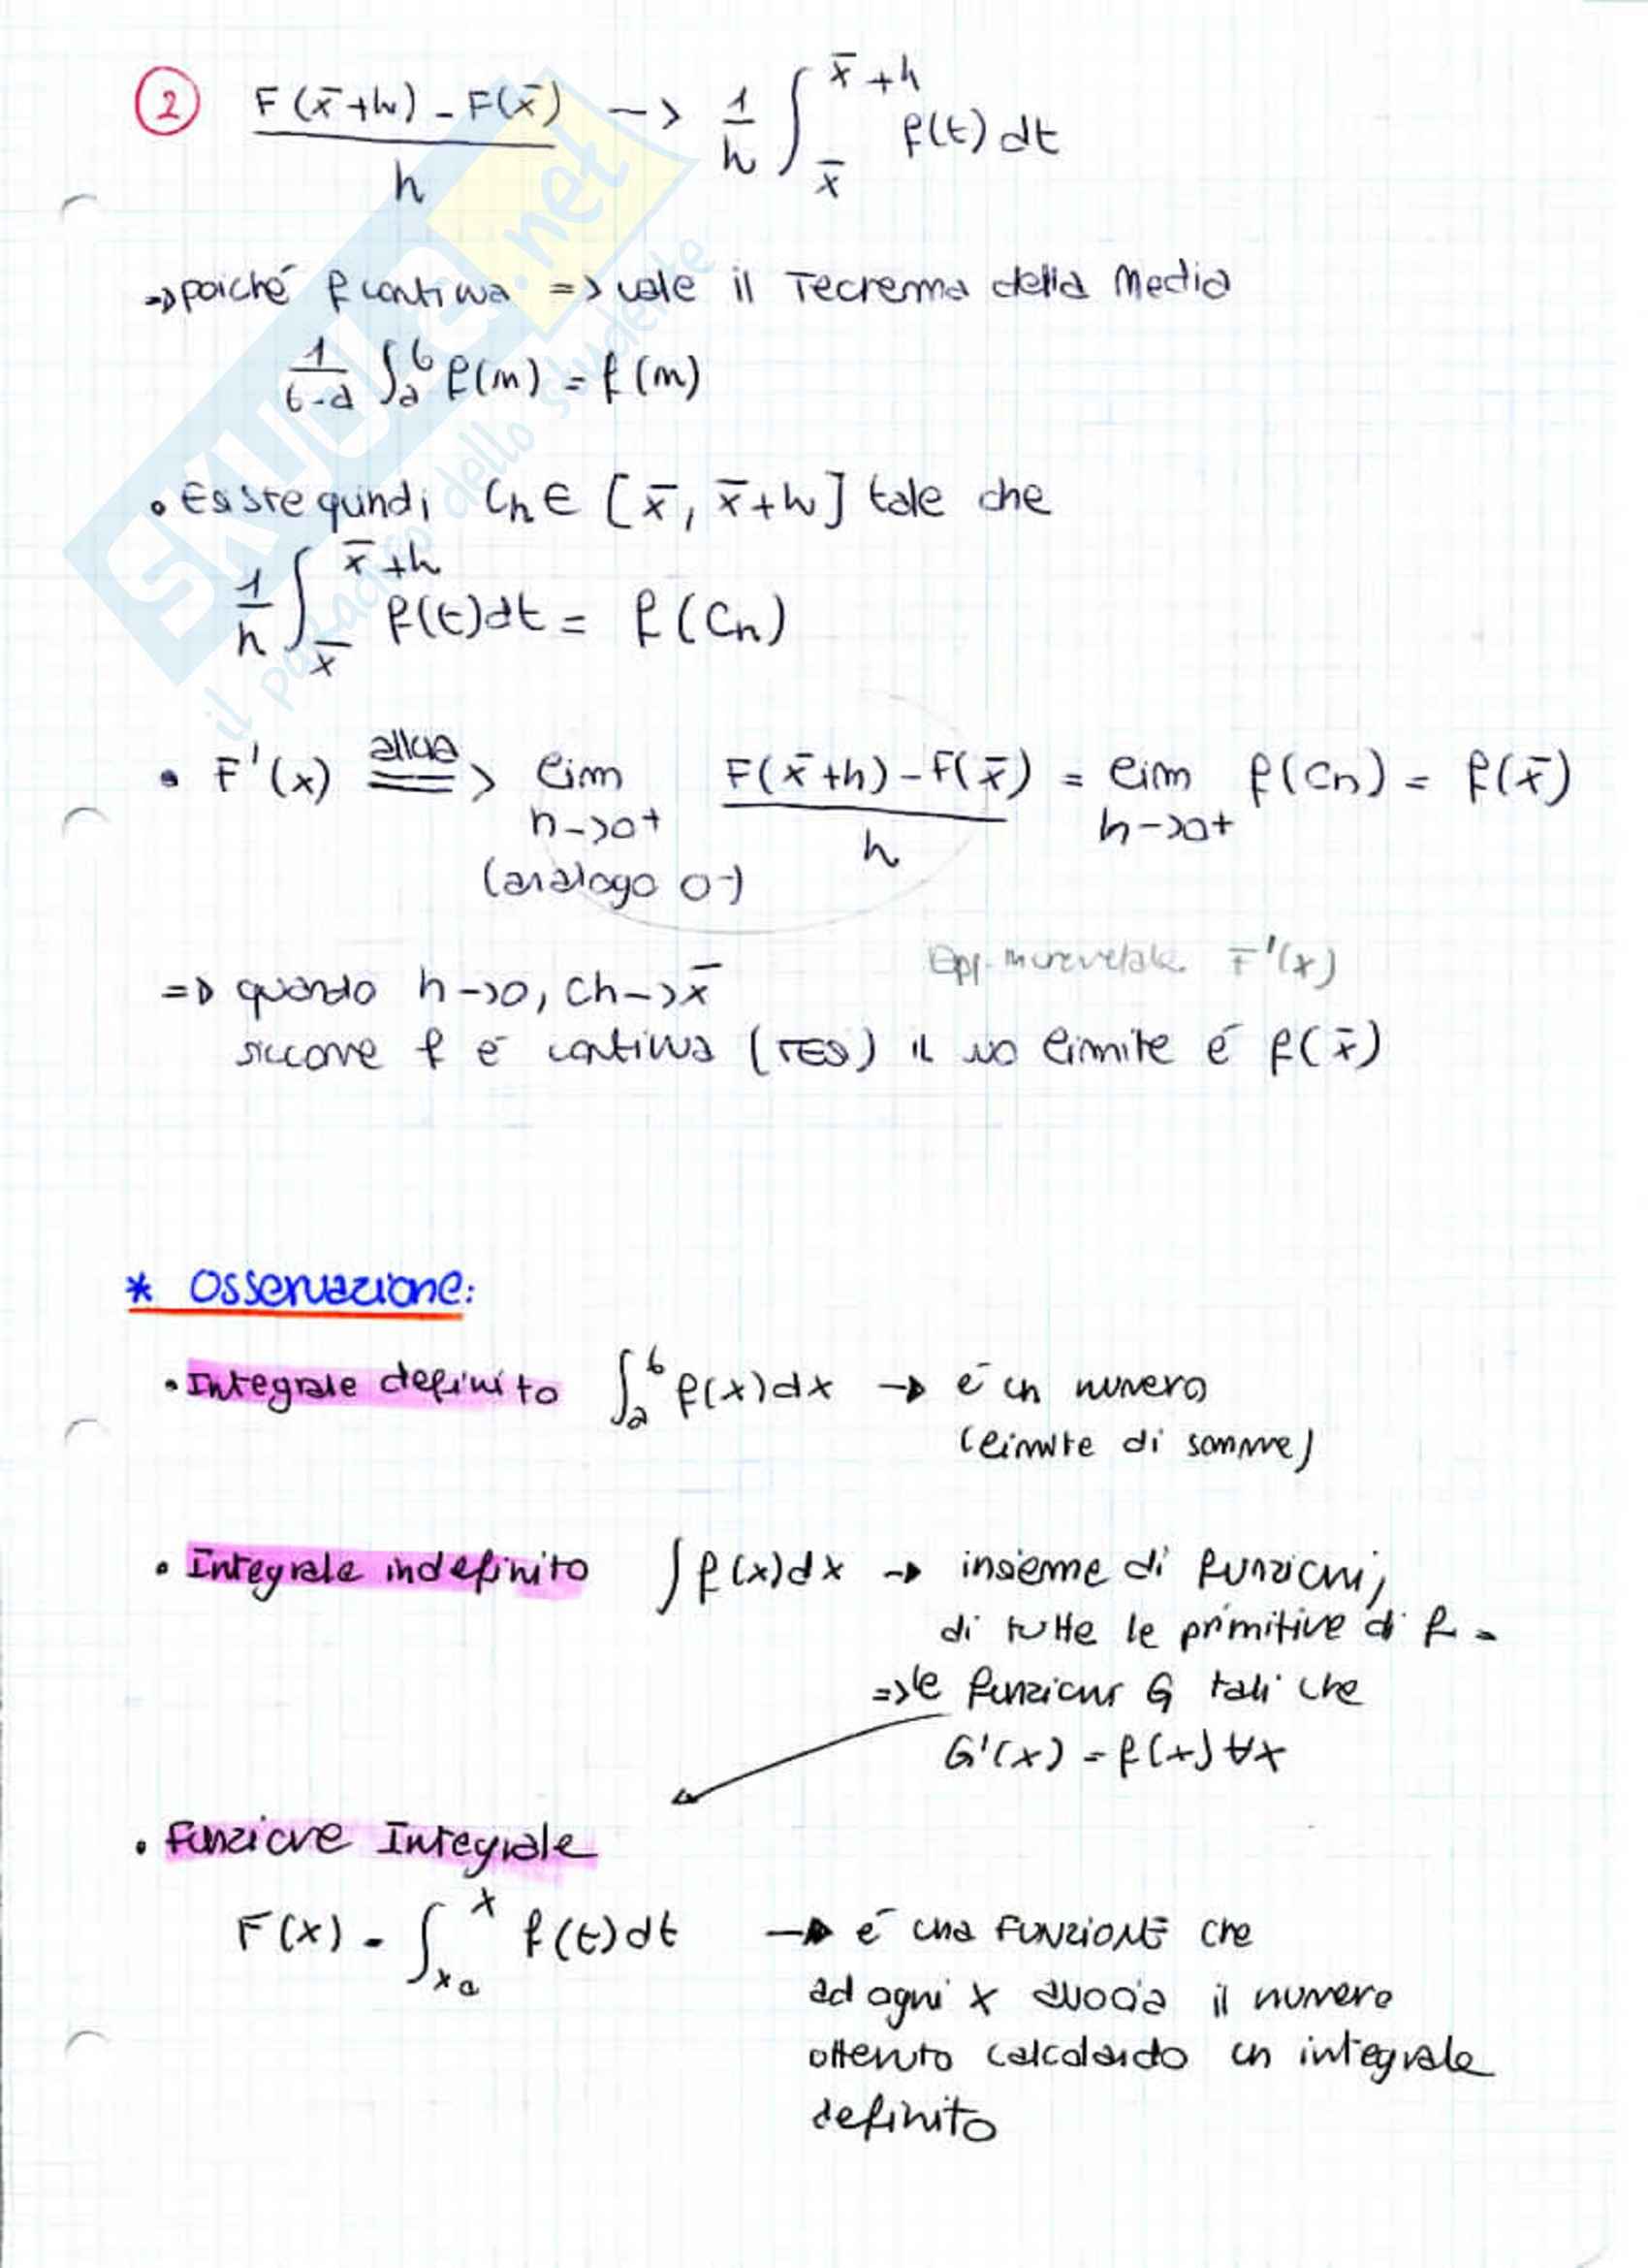 2 F(x̄+h) - F(x̄) / h —> 1/h ∫_x̄^x̄+h f(t) dt
=> poiché f continua => vale il Teorema della Media
1/(b-a) ∫_a^b f(m) = f(m)
• Esiste quindi Ch ∈ [x̄, x̄+h] tale che
1/h ∫_x̄^x̄+h f(t)dt = f(Ch)
• F'(x) allora ==> lim h->0+ F(x̄+h) - F(x̄) / h = lim h->0+ f(Ch) = f(x̄)
(analogo 0-)
F'(x)
=> quando h->0, Ch->x̄
siccome f è continua (TES) il suo limite é f(x̄)
* Osservazione:
• Integrale definito ∫_a^b f(x)dx -> é un numero
(limite di somme)
• Integrale indefinito ∫f(x)dx -> insieme di funzioni,
di tutte le primitive di f.
=> le funzioni G tali che
G'(x) = f(x) ∀x
• Funzione Integrale
F(x) = ∫_x0^x f(t)dt -> é una FUNZIONE che
ad ogni x associa il numero
ottenuto calcolando un integrale
definito
SKUOLA.net
il paradiso dello studente